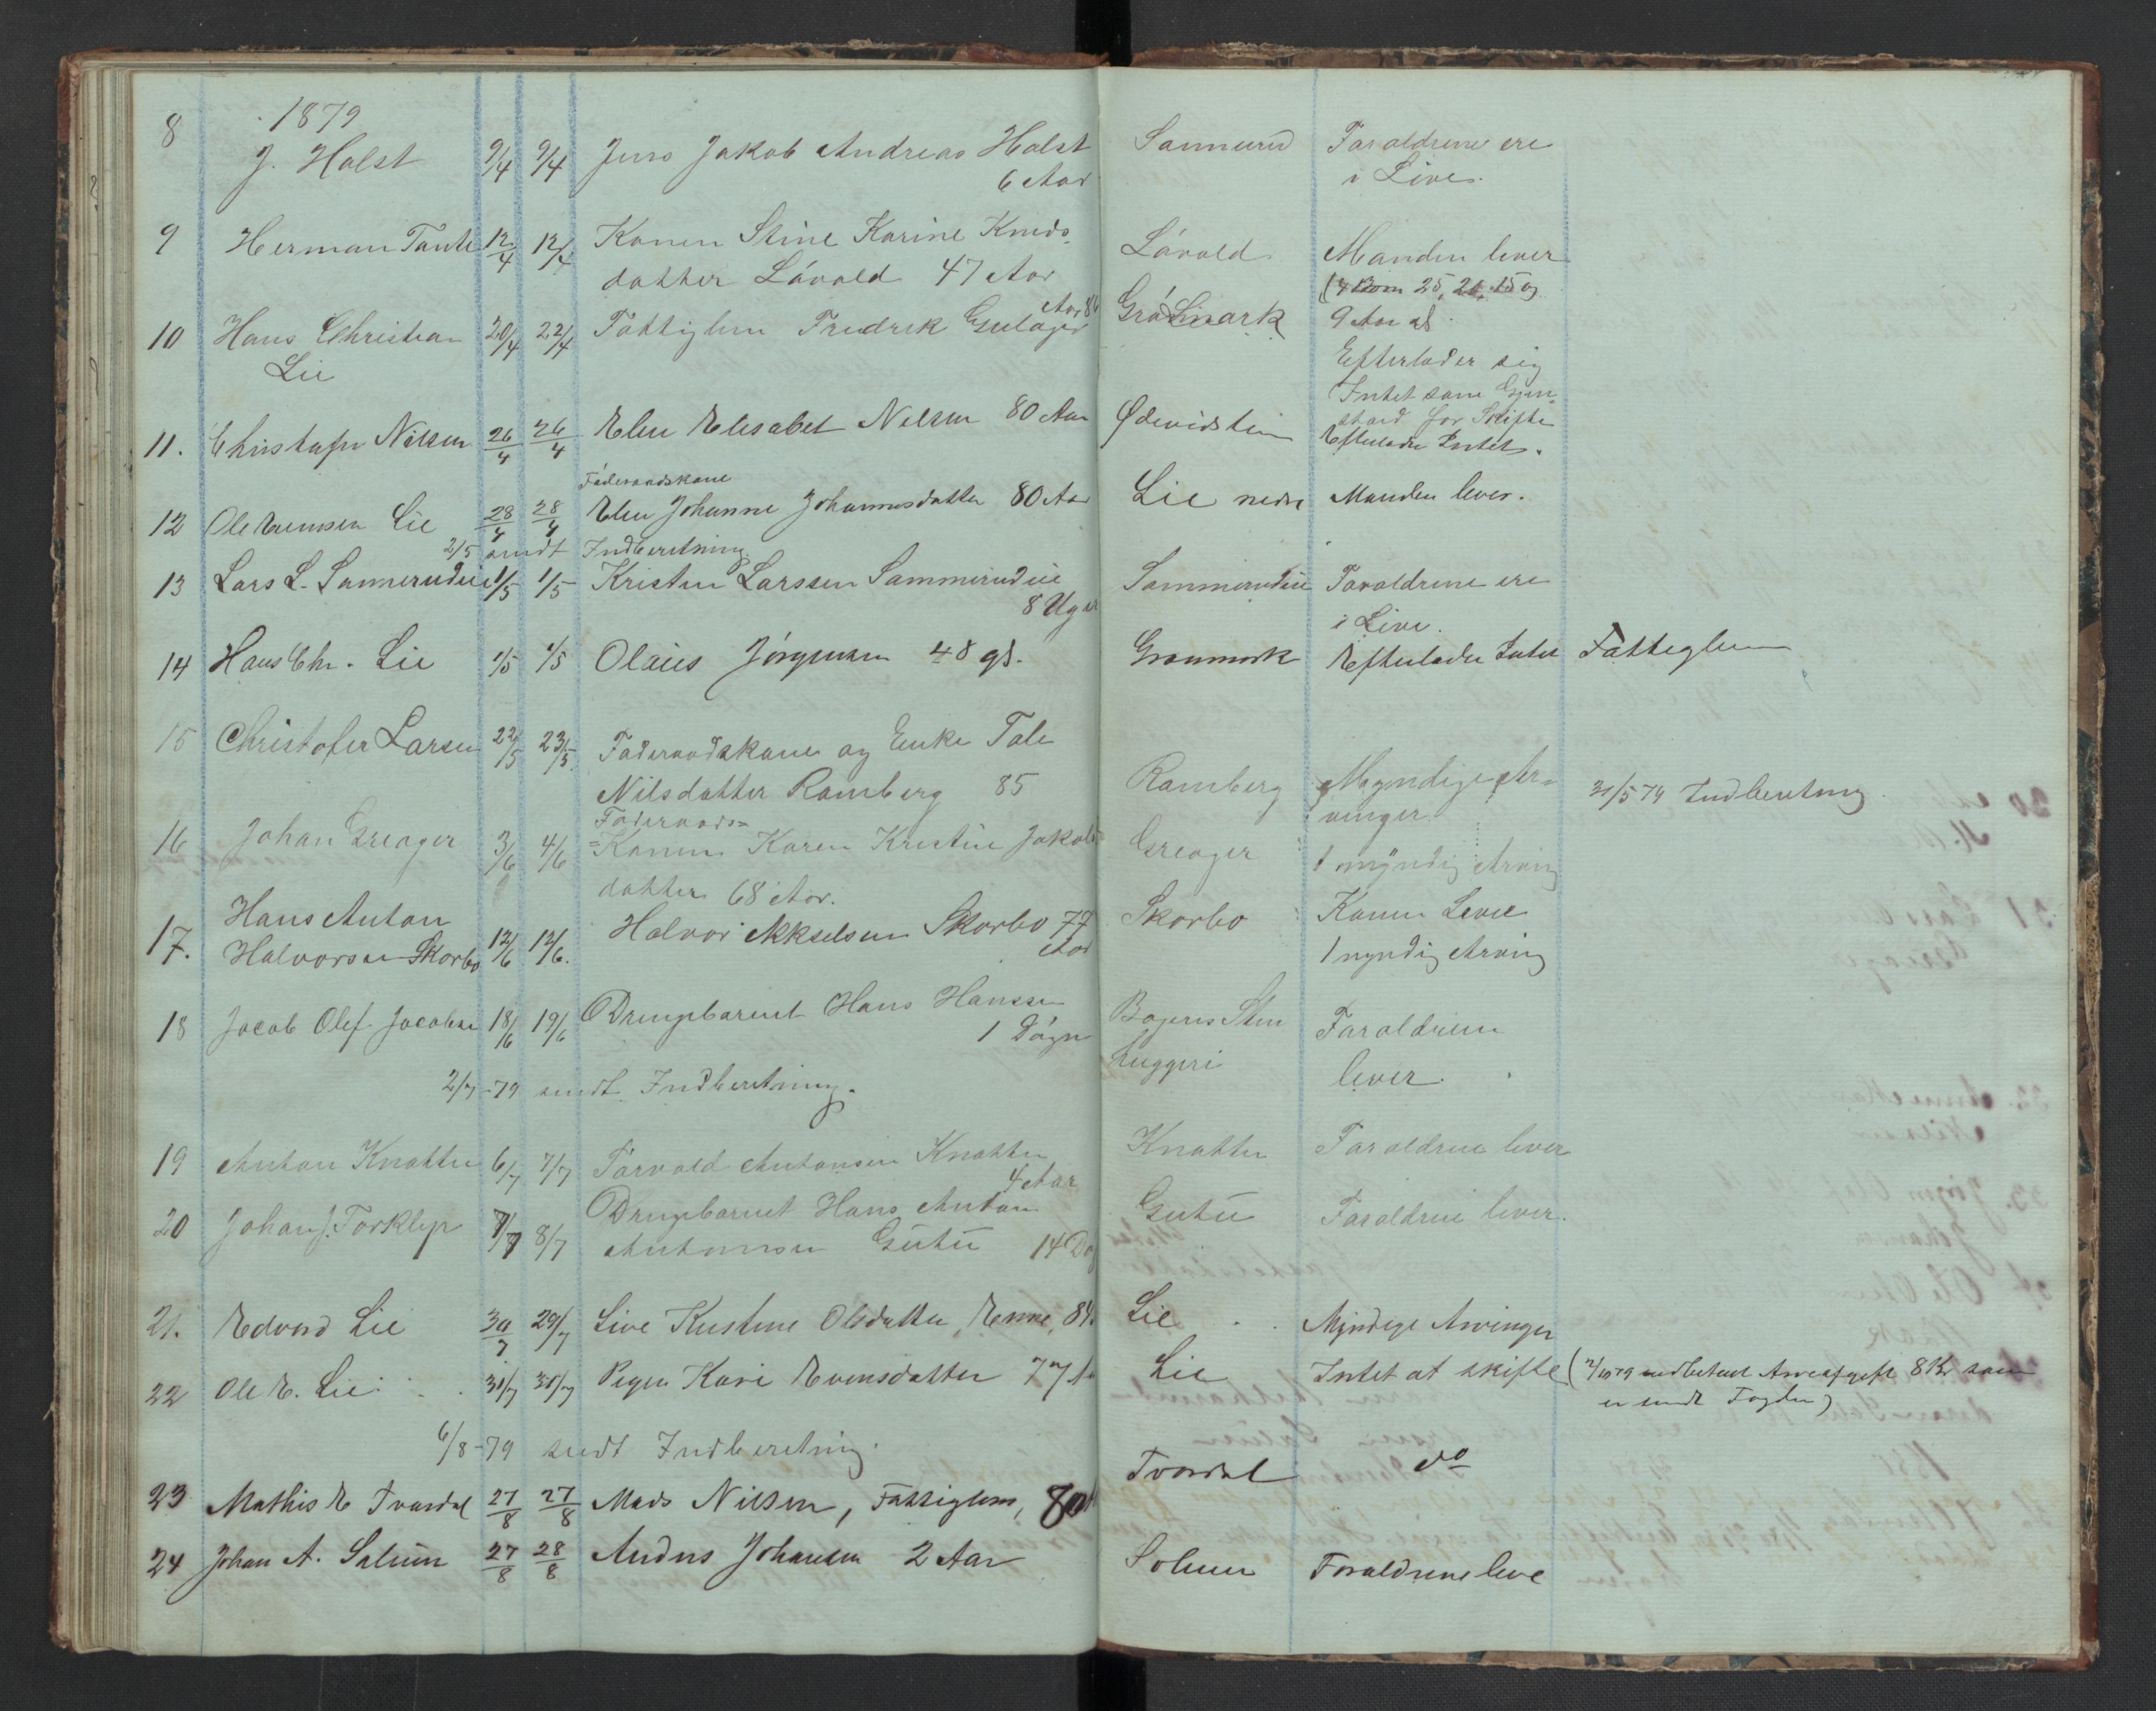 1879
8 J. Holst 9/4 9/4 Jens Jakob Andreas Holst Sannerud Foraldrene ere
6 Aar i Live.
9 Herman Tante 12/4 12/4 Konen Stine Karine Knuds-
datter Låvald 47 Aar Låvald Manden lever
(4 Børn 25, 21, 15 og
9 Aar gl.
10 Hans Christian 20/4 22/4 Fattiglem Fredrek Gulager Aar 86 Gråsmark
Lie
Efterlader sig
Intet som Gjen-
stand for Skifte
11. Christofer Nilsen 26/4 26/4 Elen Elisabet Nilsen 80 Aar Ødevidstein Efterlader Intet.
Føderaadskone
12 Ole Evensen Lie 28/4 28/4 Elen Johanne Johannesdatter 80 Aar Lie nedre Manden lever.
2/5 sendt Indberetning
13 Lars L. Sannerudeie 1/5 1/5 Kristen Larssen Sammerudeie Sammerudeie Foraldrene ere
8 Uger i Live.
14 Hans Chr. Lie 1/5 1/5 Olaus Jørgensen 48 gl. Gransmark Efterlader Intet Fattiglem
15 Christofer Larsen 22/5 23/5 Foderaadskone og Enke Tale
Nilsdatter Ramberg 85 Ramberg Myndige Ar-
vinger. 31/5 79 Indberetning.
Foderaads-
16 Johan Greager 3/6 4/6 -Konen Karen Kristine Jakobs- Greager 1 myndig Arving
datter 68 Aar.
Hans Anton
17. Halvorsen Skorbo 12/6 12/6. Halvor Akselsen Skorbo 77 Aar Skorbo Konen Lever
1 myndig Arving
18 Jacob Olef Jacobsen 18/6 19/6 Drengebarnet Hans Hanssen Bagers Sten Foraldrene
1 Døgn huggeri lever.
2/7-79 sendt Indberetning.
19 Anton Knatten 6/7 7/7 Torvald Antonsen Knatten Knatten Foraldrene lever
4 Aar
20 Johan J. Torklep 7/7 8/7 Drengebarnet Hans Anton
Antonsen Gutu 14 Dag Gutu Foraldrene lever.
21. Edvard Lie 30/7 29/7 Live Kirstine Olsdatter, Renne, 84 Lie Myndige Arvinger
22 Ole E. Lie 31/7 31/7 Pigen Kari Evensdatter 77 Aar Lie Intet at skifte (2/10 79 indbetalt Arveafgift 8 Kr som
er sendt Fogden)
6/8-79 sendt Indberetning.
23 Mathis E Tvardal 27/8 27/8 Mads Nilsen, Fattiglem, 80 Tvardal do
24 Johan A. Solum 27/8 28/8 Andres Johansen 2 Aar Solum Foraldrene leve